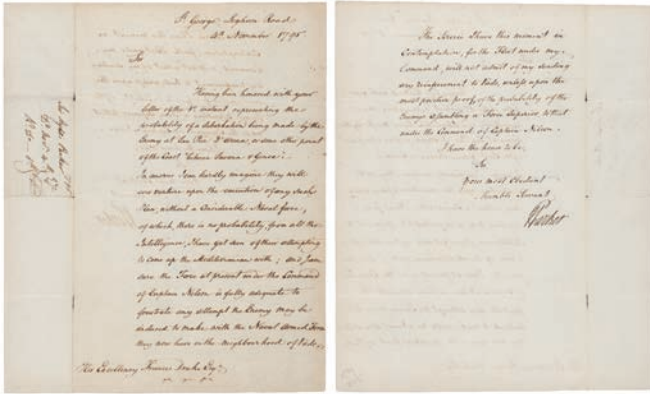 St. George, Leghorn Road
4th November 1795
Sir
Having been honored with your
letter of the 1st instant representing the
probability of a debarkation being made by the
Enemy at
of the Coast between Savona & Genoa:
In answer I can hardly imagine they will
ever venture upon the execution of any such
Plan, without a Considerable Naval force,
of which, there is no probability, from all the
Intelligence I have yet seen of their attempting
to come up the Mediterranean with; and I am
sure the Force at present under the Command
of Captain Nelson is fully adequate to
frustrate any attempt the Enemy may be
induced to make with the Naval armed Force
they now have in the neighbourhood of Vado,
His Excellency Francis Drake Esqr.
The Service I have this moment in
Contemplation, for the Fleet under my
Command, will not admit of my sending
any reinforcement to Vado, unless upon the
most positive proof, of the probability of the
Enemy assembling a Force Superior to that
under the Command of Captain Nelson.
I have the honor to be,
Sir
your most Obedient
humble Servant
Parker